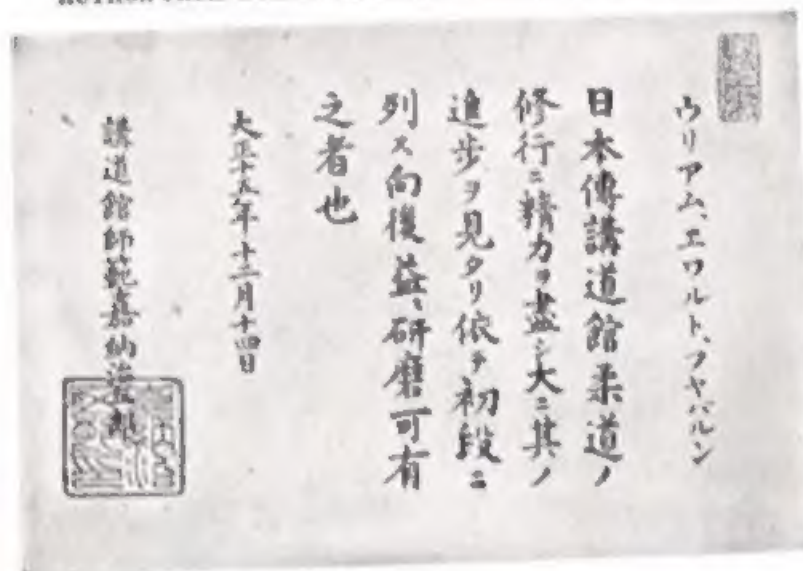 ウリアム、エワルト、フヤバルン
日本傳講道館柔道ノ
修行ニ精力ヲ盡シ大ニ其ノ
進歩ヲ見タリ依テ初段ニ
列ス向後益〻研磨可有
之者也
大正十五年十二月十四日
講道館師範嘉納治五郎